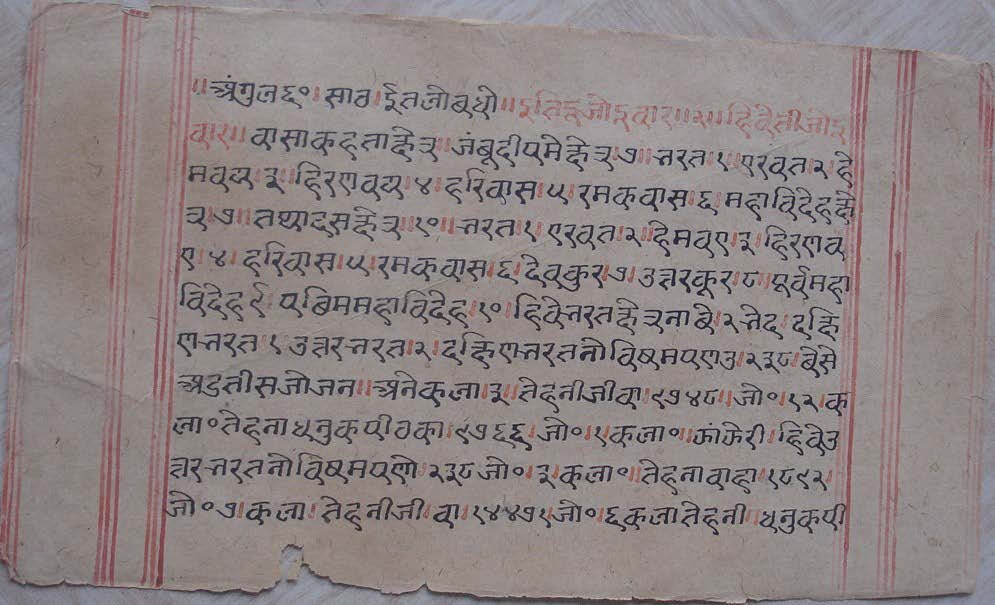 ॥अंगुल६०। साठ ईतजोबधो॥ इतिदूजोद्वार॥२॥ हिवेतीजोद्
वार॥ वासाकहताक्षेत्र। जंबूद्वीपमेक्षेत्र७॥ भरत।१। एरवत।२। हे
मवय।३। हिरणवय।४। हरिवास।५। रमकवास।६। महाविदेहक्षे
त्र।७। तथादसक्षेत्र।१०॥ भरत।१। एरवत।२। हेमवए।३। हिरणव
ए।४। हरिवास।५। रमकवास।६। देवकुर।७। उत्तरकुर।८। पूर्वमहा
विदेह।९। पछिममहाविदेह।१०। हिवेभरतक्षेत्रनाबे।२भेद। दक्षि
णभरत।१ उत्तरभरत।२। दक्षिणभरतनोविषमपणउ।२३८। बेसे
अडतीसजोजन॥ अनेकला।३। तेहनीजीवा।९७४८॥ जो०।१२। क
ला०तेहनाधनुकपीठका।९७६६। जो०। १कला०। झांझेरी। हिवेउ
त्तरभरतनोविषमपणो।२३८जो०। ३।कला०। तेहनाबाहा।१८९२।
जो०७।कला। तेहनीजीवा।१४४७१जो०। ६कलातेहनी॥धनुकपी